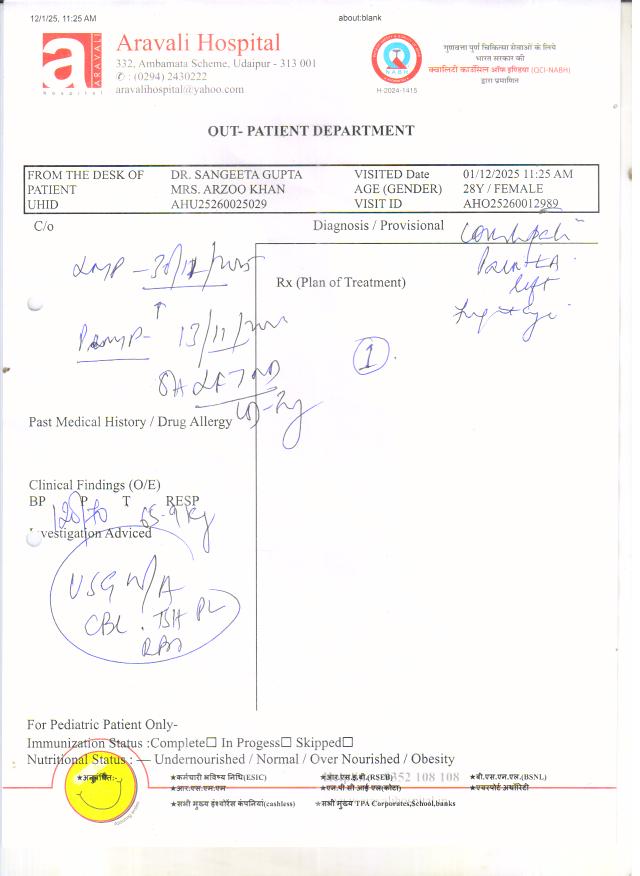 12/1/25, 11:25 AM about:blank
a ARAVALI hospital
Aravali Hospital
332, Ambamata Scheme, Udaipur - 313 001
✆ : (0294) 2430222
aravalihospital@yahoo.com
NABH
H-2024-1415
गुणवत्ता पूर्ण चिकित्सा सेवाओं के लिये
भारत सरकार की
क्वालिटी काउंसिल ऑफ इण्डिया (QCI-NABH)
द्वारा प्रमाणित
OUT- PATIENT DEPARTMENT
FROM THE DESK OF DR. SANGEETA GUPTA VISITED Date 01/12/2025 11:25 AM
PATIENT MRS. ARZOO KHAN AGE (GENDER) 28Y / FEMALE
UHID AHU25260025029 VISIT ID AHO25260012989
C/o Diagnosis / Provisional
Pain LA
left
LMP - 30/11/
Rx (Plan of Treatment)
13/11/
1
Past Medical History / Drug Allergy
Clinical Findings (O/E)
BP P T RESP
120/70 65.9 kg
Investigation Adviced
USG W/A
CBC . TSH PL
RBS
For Pediatric Patient Only-
Immunization Status :Complete☐ In Progess☐ Skipped☐
Nutritional Status : — Undernourished / Normal / Over Nourished / Obesity
352 108 108
★कर्मचारी भविष्य निधि(ESIC) ★आर.एस.इ.बी.(RSEB) ★बी.एस.एन.एल.(BSNL)
★आर.एस.एम.एम ★एन.पी सी आई एल(कोटा) ★एयरपोर्ट अथॉरिटी
★सभी मुख्य इंश्योरेंस कंपनियां(cashless) ★सभी मुख्य TPA Corporates,School,banks